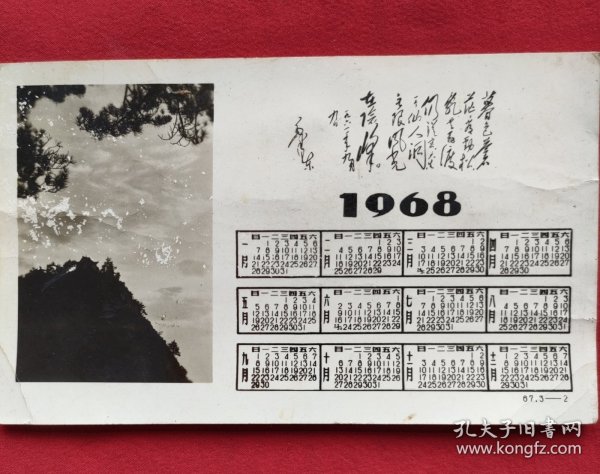 暮色蒼
茫看劲松
乱云飞渡
仍从容天生
一个仙人洞
无限风光
在险峰。
一九六一年九月
九日
毛泽东
1968
一月
日一二三四五六
1 2 3 4 5 6
7 8 9 10 11 12 13
14 15 16 17 18 19 20
21 22 23 24 25 26 27
28 29 30 31
二月
日一二三四五六
1 2 3
4 5 6 7 8 9 10
11 12 13 14 15 16 17
18 19 20 21 22 23 24
25 26 27 28 29
三月
日一二三四五六
1 2
3 4 5 6 7 8 9
10 11 12 13 14 15 16
17 18 19 20 21 22 23
24/31 25 26 27 28 29 30
四月
日一二三四五六
1 2 3 4 5 6
7 8 9 10 11 12 13
14 15 16 17 18 19 20
21 22 23 24 25 26 27
28 29 30
五月
日一二三四五六
1 2 3 4
5 6 7 8 9 10 11
12 13 14 15 16 17 18
19 20 21 22 23 24 25
26 27 28 29 30 31
六月
日一二三四五六
1
2 3 4 5 6 7 8
9 10 11 12 13 14 15
16 17 18 19 20 21 22
23/30 24 25 26 27 28 29
七月
日一二三四五六
1 2 3 4 5 6
7 8 9 10 11 12 13
14 15 16 17 18 19 20
21 22 23 24 25 26 27
28 29 30 31
八月
日一二三四五六
1 2 3
4 5 6 7 8 9 10
11 12 13 14 15 16 17
18 19 20 21 22 23 24
25 26 27 28 29 30 31
九月
日一二三四五六
1 2 3 4 5 6 7
8 9 10 11 12 13 14
15 16 17 18 19 20 21
22 23 24 25 26 27 28
29 30
十月
日一二三四五六
1 2 3 4 5
6 7 8 9 10 11 12
13 14 15 16 17 18 19
20 21 22 23 24 25 26
27 28 29 30 31
十一月
日一二三四五六
1 2
3 4 5 6 7 8 9
10 11 12 13 14 15 16
17 18 19 20 21 22 23
24 25 26 27 28 29 30
十二月
日一二三四五六
1 2 3 4 5 6 7
8 9 10 11 12 13 14
15 16 17 18 19 20 21
22 23 24 25 26 27 28
29 30 31
67.3—2
孔夫子旧书网
www.kongfz.com